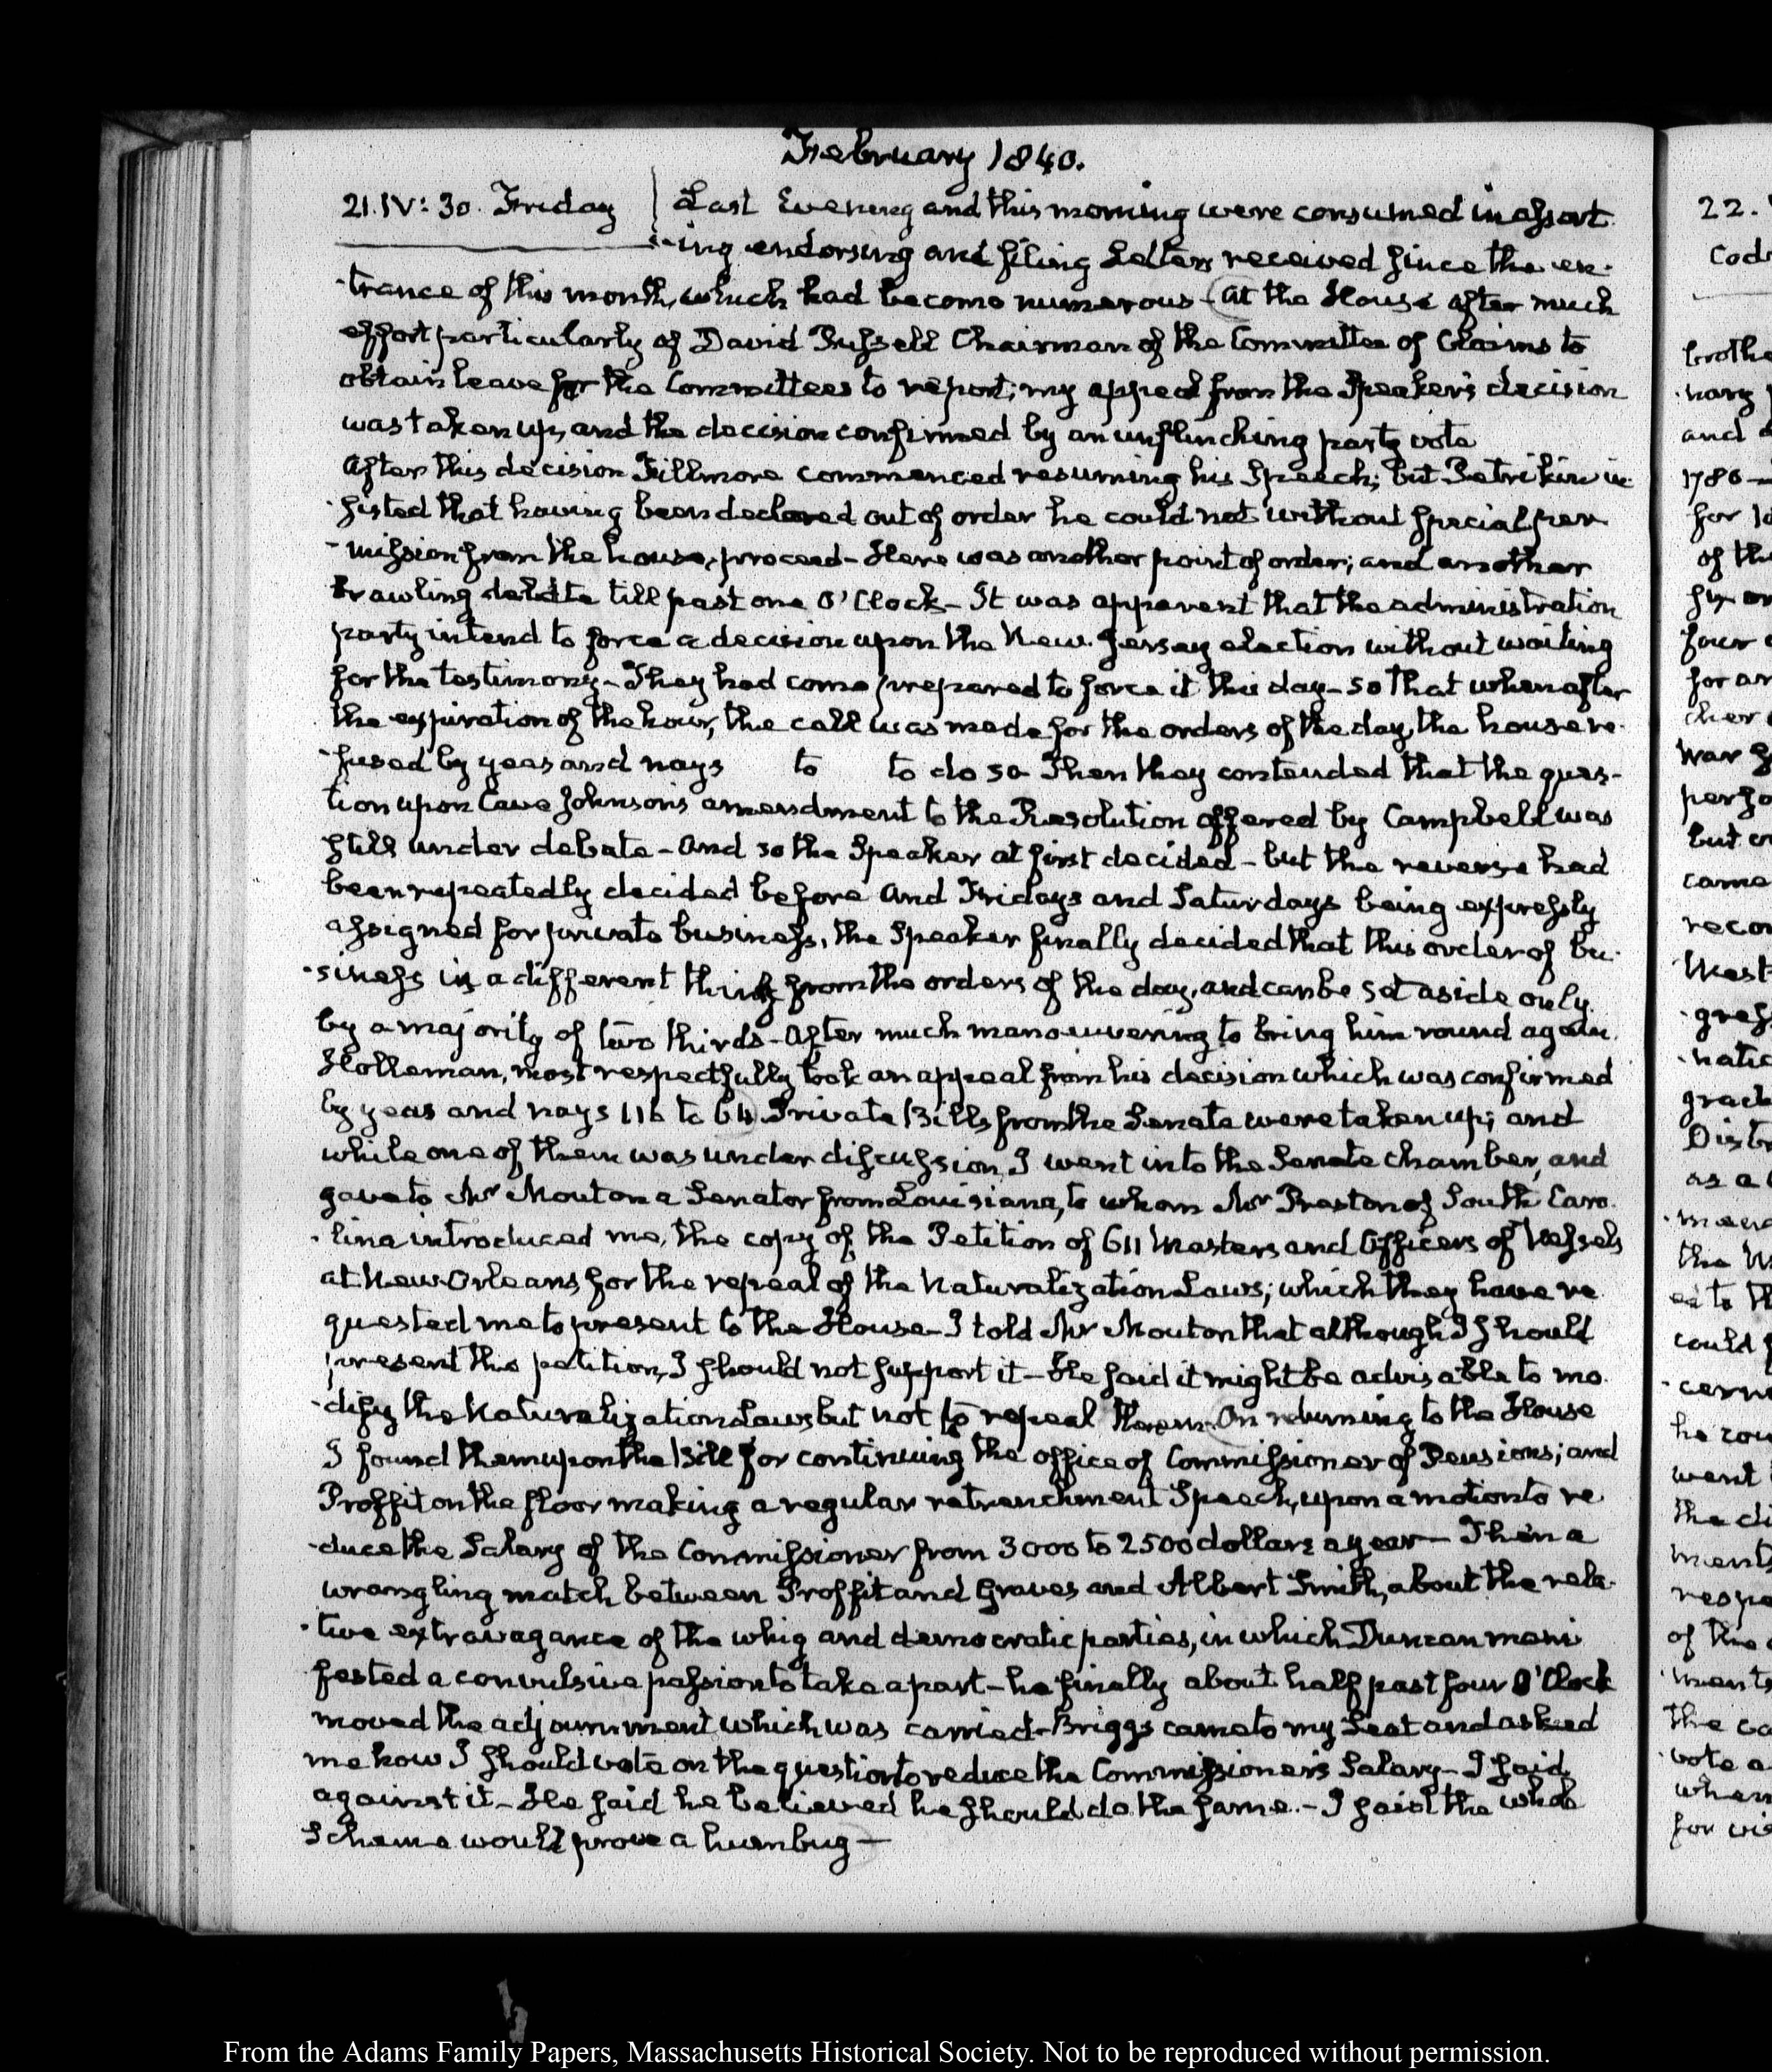 February 1840.
21. IV: 30. Friday Last Evening and this morning were consumed in assort
-ing endorsing and filing Letters received since the en-
-trance of this month, which had become numerous - At the House after much
effort particularly of David Russell Chairman of the Committee of Claims to
obtain leave for the Committees to report; my appeal from the Speaker's decision
was taken up, and the decision confirmed by an unflinching party vote
After this decision Fillmore commenced resuming his Speech; but Petrikin in-
-sisted that having been declared out of order he could not without special per
-mission from the house, proceed - Here was another point of order; and another
brawling debate till past one O'Clock - It was apparent that the administration
party intend to force a decision upon the New-Jersey election without waiting
for the testimony - They had come prepared to force it this day - so that when after
the expiration of the hour, the call was made for the orders of the day, the house re-
-fused by yeas and nays to to do so Then they contended that the ques-
tion upon Cave Johnson's amendment to the Resolution offered by Campbell was
still under debate - And so the Speaker at first decided - but the reverse had
been repeatedly decided before And Fridays and Saturdays being expressly
assigned for private business, the Speaker finally decided that this order of bu-
-siness is a different thing from the orders of the day, and can be set aside only
by a majority of two thirds - After much manoeuvering to bring him round again.
Holleman, most respectfully took an appeal from his decision which was confirmed
by yeas and nays 116 to 64. Private Bills from the Senate were taken up; and
while one of them was under discussion, I went into the Senate chamber, and
gave to Mr Mouton a Senator from Louisiana, to whom Mr Preston of South Caro-
-lina introduced me, the copy of the Petition of 611 Masters and Officers of Vessels
at New Orleans for the repeal of the Naturalization Laws; which they have re
quested me to present to the House - I told Mr Mouton that although I should
present this petition, I should not support it - He said it might be advisable to mo-
-dify the Naturalization Laws but not to repeal them. On returning to the House
I found them upon the Bill for continuing the office of Commissioner of Pensions; and
Proffit on the floor making a regular retrenchment Speech, upon a motion to re
-duce the Salary of the Commissioner from 3000 to 2500 dollars a year - Then a
wrangling match between Proffit and Graves and Albert Smith, about the rela-
-tive extravagance of the whig and democratic parties, in which Duncan mani
fested a convulsive passion to take a part - he finally about half past four O'Clock
moved the adjournment which was carried - Briggs came to my Seat and asked
me how I should vote on the question to reduce the Commissioner's Salary - I said
against it - He said he believed he should do the same. - I said the whole
Scheme would prove a humbug -
22.
Cod
brothe
-nary
and
1786 -
for
of the
for an
cher
war
perfo
but
came
recor
-gress
-natio
grad
Distr
as a
the
could
-cern
he
went
the di
ments
respe
of the
-ments
the
vote a
when
From the Adams Family Papers, Massachusetts Historical Society. Not to be reproduced without permission.